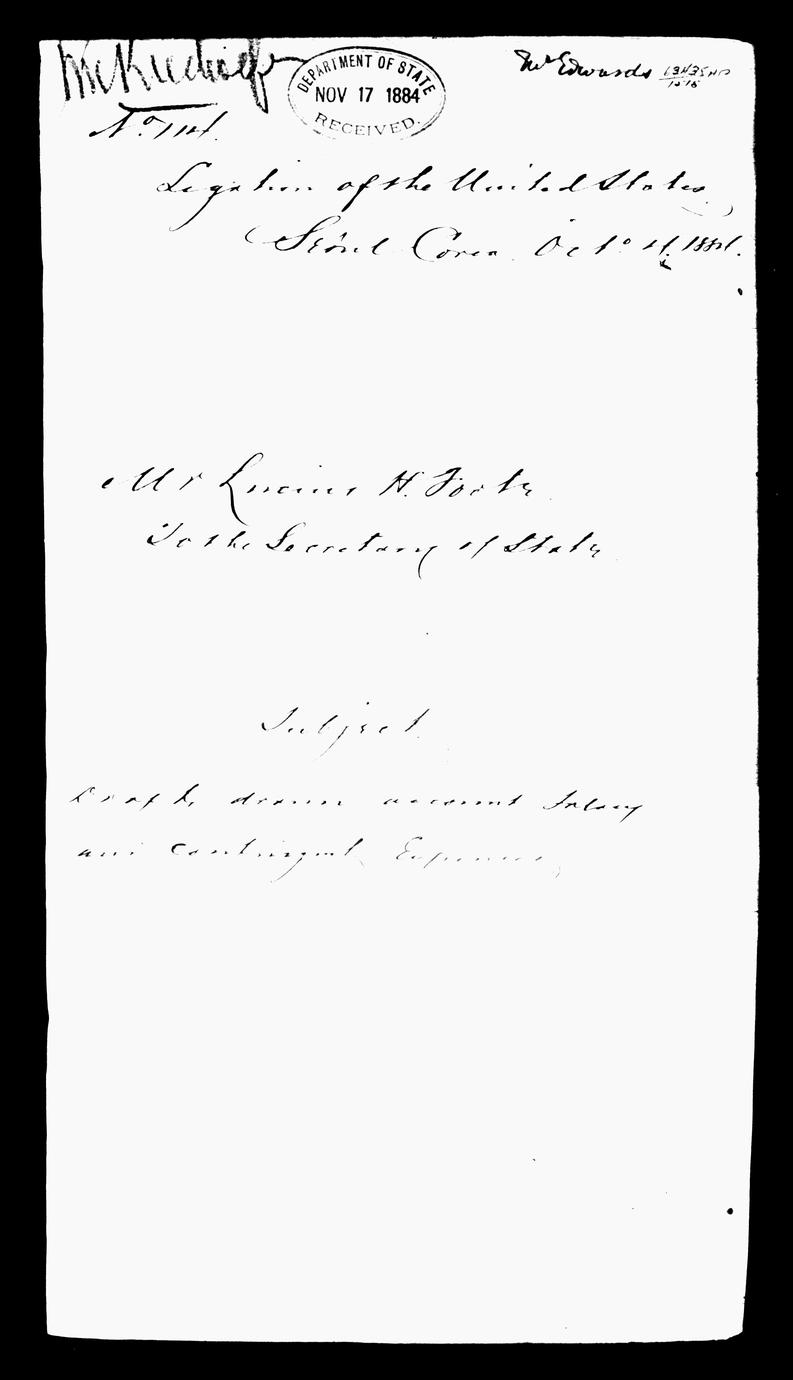 DEPARTMENT OF STATE
NOV 17 1884
RECEIVED.
Mr Edwards
Nº 114.
Legation of the United States,
Seoul Corea. Octº 4. 1884.
Mr Lucius H. Foote.
To the Secretary of State
Subject.
Drafts drawn account Salary
and Contingent Expenses,